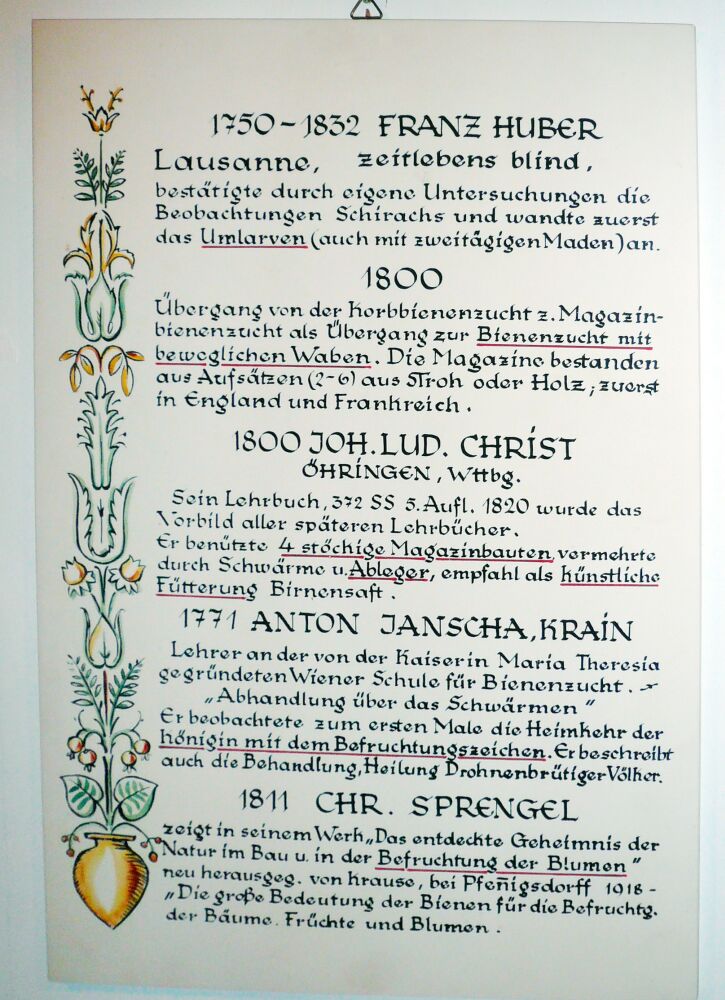 1750–1832 FRANZ HUBER
Lausanne, zeitlebens blind,
bestätigte durch eigene Untersuchungen die
Beobachtungen Schirachs und wandte zuerst
das Umlarven (auch mit zweitägigen Maden) an.
1800
Übergang von der Korbbienenzucht z. Magazin-
bienenzucht als Übergang zur Bienenzucht mit
beweglichen Waben. Die Magazine bestanden
aus Aufsätzen (2-6) aus Stroh oder Holz; zuerst
in England und Frankreich.
1800 JOH. LUD. CHRIST
ÖHRINGEN, Wttbg.
Sein Lehrbuch, 372 SS 5. Aufl. 1820 wurde das
Vorbild aller späteren Lehrbücher.
Er benützte 4 stöckige Magazinbauten, vermehrte
durch Schwärme u. Ableger, empfahl als künstliche
Fütterung Birnensaft.
1771 ANTON JANSCHA, KRAIN
Lehrer an der von der Kaiserin Maria Theresia
gegründeten Wiener Schule für Bienenzucht. –
„Abhandlung über das Schwärmen"
Er beobachtete zum ersten Male die Heimkehr der
Königin mit dem Befruchtungszeichen. Er beschreibt
auch die Behandlung, Heilung Drohnenbrütiger Völker.
1811 CHR. SPRENGEL
zeigt in seinem Werk „Das entdeckte Geheimnis der
Natur im Bau u. in der Befruchtung der Blumen"
neu herausgeg. von Krause, bei Pfeñigsdorff 1918 -
„Die große Bedeutung der Bienen für die Befruchtg.
der Bäume. Früchte und Blumen.